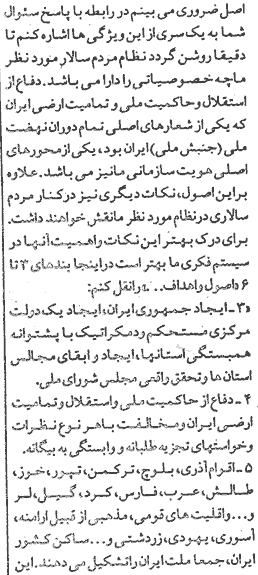 اصل ضروری می بینم در رابطه با پاسخ سئوال
شما به یک سری از این ویژگی ها اشاره کنم تا
دقیقا روشن گردد نظام مردم سالار مورد نظر
ما چه خصوصیاتی را دارا می باشد. دفاع از
استقلال و حاکمیت ملی و تمامیت ارضی ایران
که یکی از شعارهای اصلی تمام دوران نهضت
ملی (جنبش ملی) ایران بود، یکی از محورهای
اصلی هویت سازمانی ما نیز می باشد. علاوه
بر این اصول، نکات دیگری نیز در کنار مردم
سالاری در نظام مورد نظر ما نقش خواهند داشت.
برای درک بهتر این نکات و اهمیت آنها در
سیستم فکری ما بهتر است در اینجا بندهای ۳ تا
۶ «اصول و اهداف..» را نقل کنم:
«۳ـ ایجاد جمهوری ایران، ایجاد یک دولت
مرکزی مستحکم و دمکراتیک با پشتوانه
همبستگی استانها، ایجاد و ابقای مجالس
استان ها و تحقق واقعی مجلس شورای ملی.
۴ ـ دفاع از حاکمیت ملی و استقلال و تمامیت
ارضی ایران و مخالفت با هر نوع نظرات
و خواستهای تجزیه طلبانه و وابستگی به بیگانه.
۵ ـ اقوام آذری، بلوچ، ترکمن، تپور، خوز،
طالش، عرب، فارس، کرد، گیل، لر
و... و اقلیت های قومی، مذهبی از قبیل ارامنه،
آسوری، یهودی، زردشتی و... ساکن کشور
ایران، جمعا ملت ایران را تشکیل می دهند. این